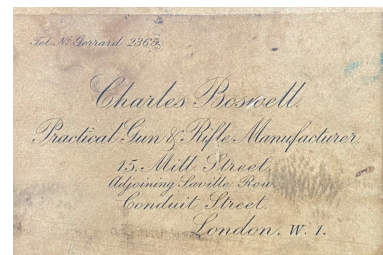 Tel. No. Gerrard 2368.
Charles Boswell.
Practical Gun & Rifle Manufacturer.
15. Mill Street.
Adjoining Saville Row.
Conduit Street.
London. W. 1.